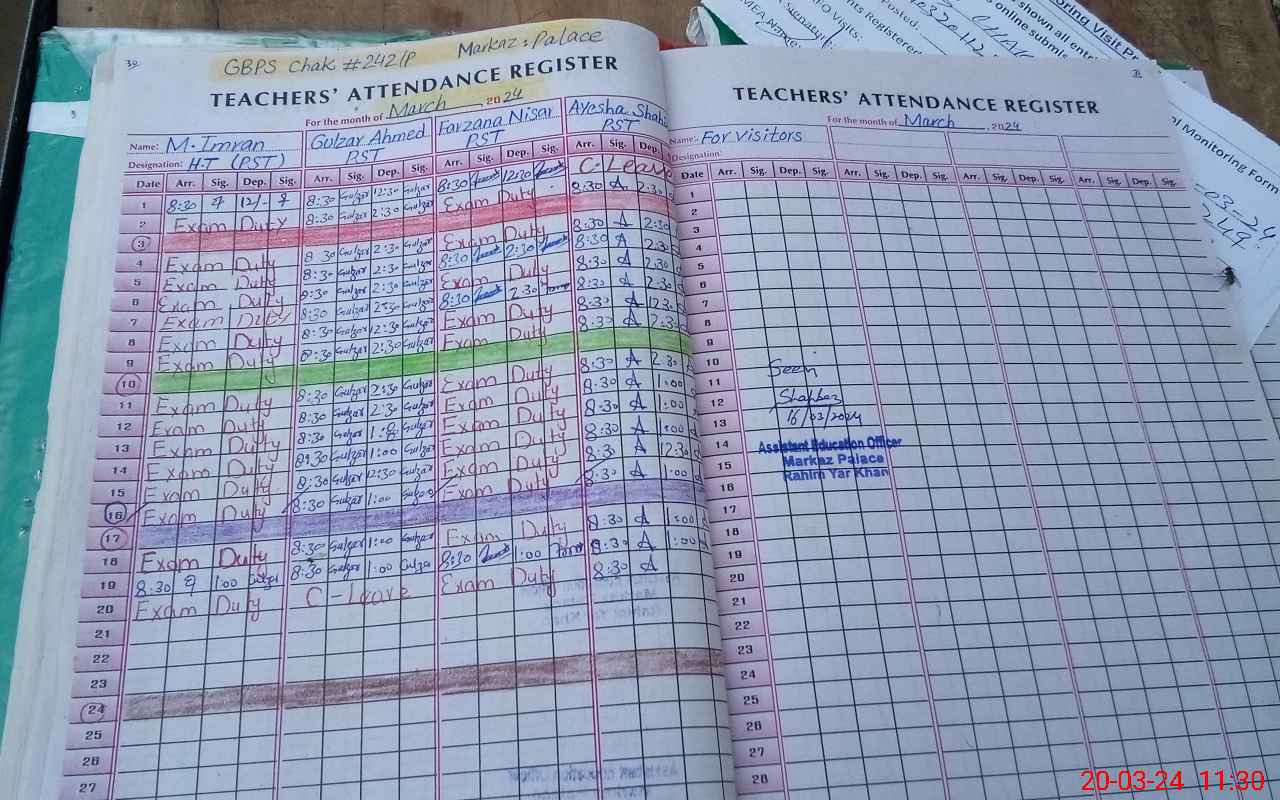 30
GBPS Chak #242/P Markaz: Palace
TEACHERS' ATTENDANCE REGISTER
For the month of March 2024
Name: M. Imran Gulzar Ahmed Farzana Nisar Ayesha
Designation: H.T (PST) PST PST PST
Date Arr. Sig. Dep. Sig. Arr. Sig. Dep. Sig. Arr. Sig. Dep. Sig. Arr. Sig. Dep.
1 8:30 12/- 8:30 Gulzar 12:30 Gulzar 8:30 12:30 C-Leave
2 Exam Duty 8:30 Gulzar 2:30 Gulzar Exam Duty 8:30 A 2:30
3
4 Exam Duty 8:30 Gulzar 2:30 Gulzar Exam Duty 8:30 A 2:30
5 Exam Duty 8:30 Gulzar 2:30 Gulzar 8:30 2:30 8:30 A 2:30
6 Exam Duty 8:30 Gulzar 2:30 Gulzar Exam Duty 8:30 A 2:30
7 Exam Duty 8:30 Gulzar 2:30 Gulzar 8:30 2:30 8:30 A 2:30
8 Exam Duty 8:30 Gulzar 12:30 Gulzar Exam Duty 8:30 A 12:30
9 Exam Duty 8:30 Gulzar 2:30 Gulzar Exam Duty 8:30 A 2:30
10
11 Exam Duty 8:30 Gulzar 2:30 Gulzar Exam Duty 8:30 A 2:30
12 Exam Duty 8:30 Gulzar 2:30 Gulzar Exam Duty 8:30 A 1:00
13 Exam Duty 8:30 Gulzar Gulzar Exam Duty 8:30 A 1:00
14 Exam Duty 8:30 Gulzar 1:00 Gulzar Exam Duty 8:30 A 1:00
15 Exam Duty 8:30 Gulzar 12:30 Gulzar Exam Duty 8:30 A 12:30
16 Exam Duty 8:30 Gulzar 1:00 Gulzar Exam Duty 8:30 A 1:00
17
18 Exam Duty 8:30 Gulzar 1:00 Gulzar Exam Duty 8:30 A 1:00
19 8:30 1:00 8:30 Gulzar 1:00 Gulzar 8:30 1:00 8:30 A 1:00
20 Exam Duty C-Leave Exam Duty 8:30 A
21
22
23
24
25
26
27
TEACHERS' ATTENDANCE REGISTER
For the month of March, 2024
Name:- For Visitors
Designation:
Date Arr. Sig. Dep. Sig. Arr. Sig. Dep. Sig. Arr. Sig. Dep. Sig. Arr. Sig. Dep. Sig.
1
2
3
4
5
6
7
8
9
10
11 Seen
12 Shahbaz
13 16/03/2024
14 Assistant Education Officer
15 Markaz Palace
16 Rahim Yar Khan
17
18
19
20
21
22
23
24
25
26
27
28
Monitoring Form
20-03-24 11:30